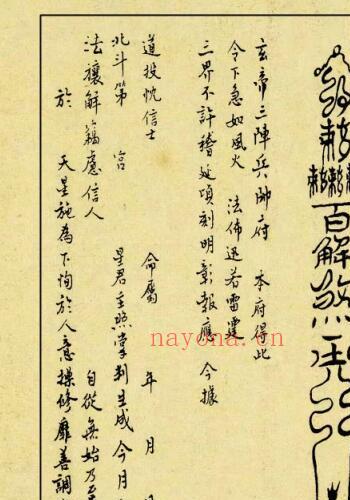 百解煞
玄帝三陣兵帥府 本府得此
令下急如風火 法佈迅若雷霆
三界不許稽延頃刻明彰報應 今據
道投忱信士 命屬 年 月
北斗第 宮 星君主照掌判生成今月
法禳解籍慮信人 自從無始乃至
於 天星施為下恂於人意操修靡善調
nayona.cn